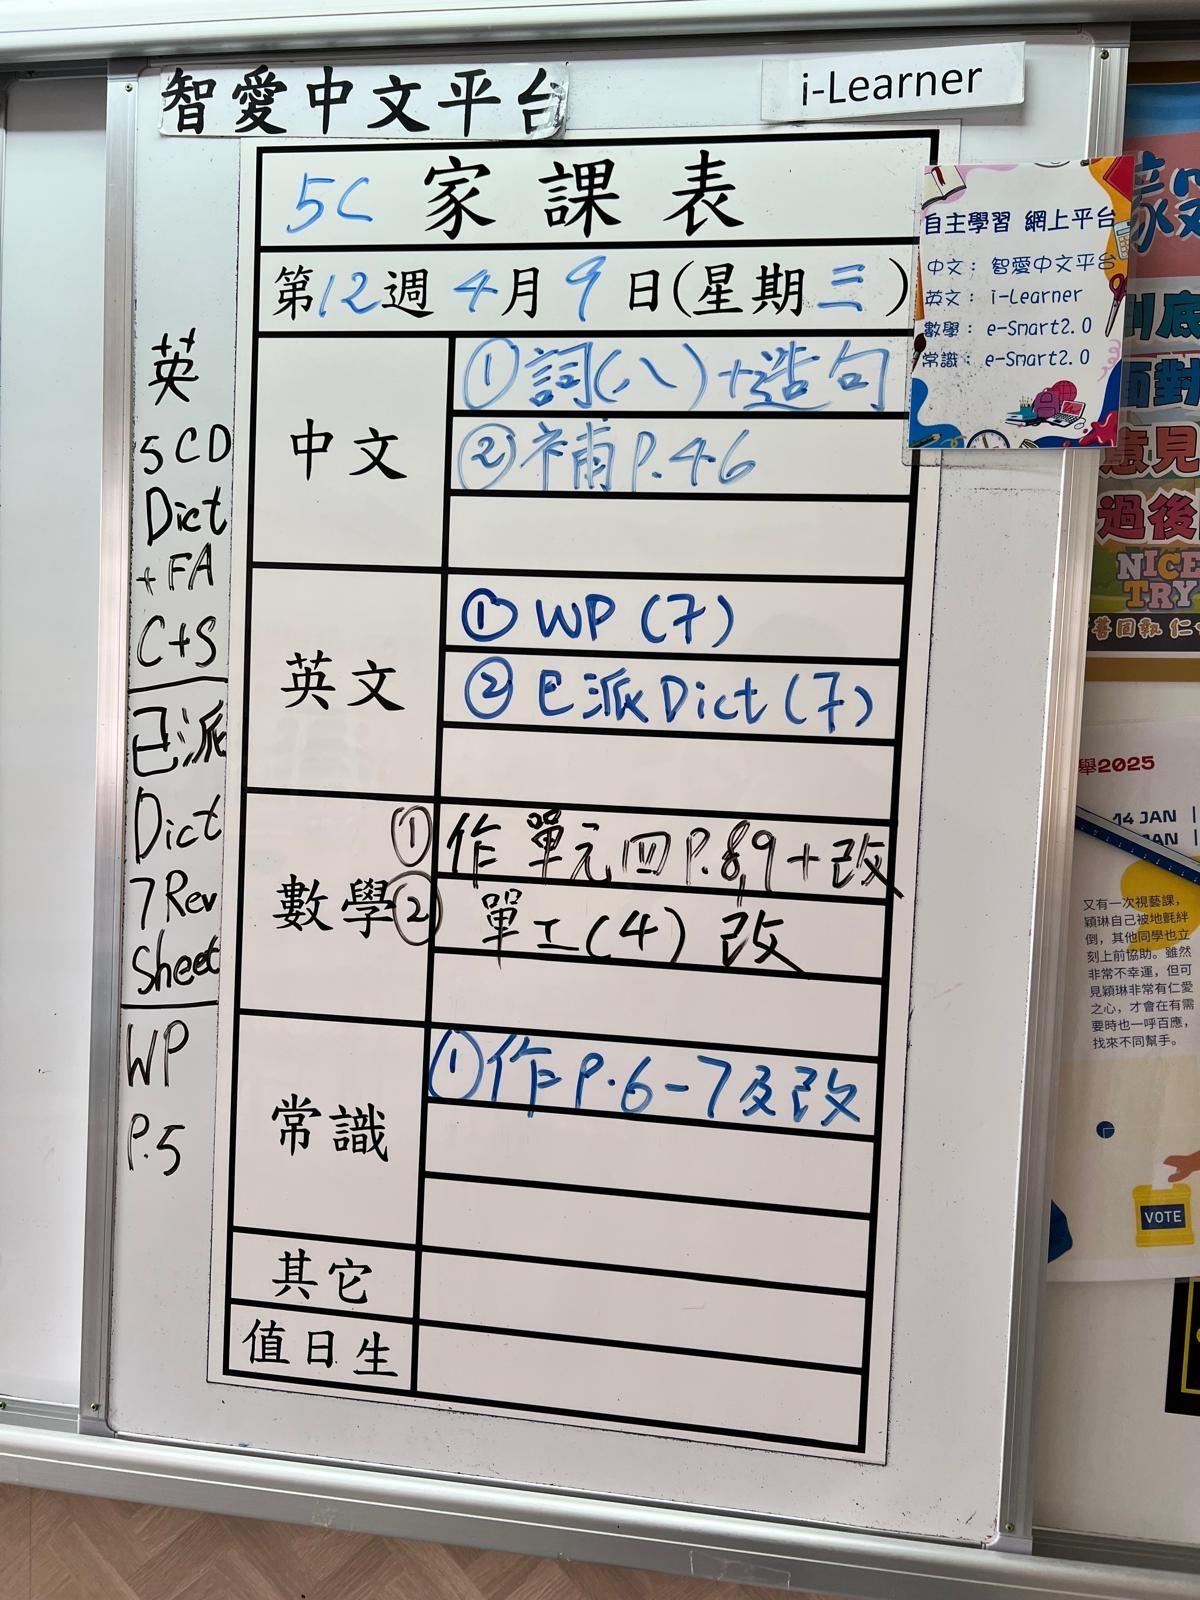 智愛中文平台
i-Learner
5C 家課表
第12週 4月9日(星期三)
中文
①詞(八)+造句
②補P.46
英文
① WP (7)
② 已派Dict (7)
數學
① 作單元四P.8,9+改
② 單工(4)改
常識
①作P.6-7及改
其它
值日生
英
5CD
Dict
+FA
C+S
已派
Dict
7 Rev
Sheet
WP
P.5
自主學習 網上平台
中文: 智愛中文平台
英文: i-Learner
數學: e-Smart2.0
常識: e-Smart2.0
到底
面對
意見
過後
NICE
TRY
善固執 仁
舉2025
14 JAN
JAN
又有一次視藝課，
穎琳自己被地氈絆
倒，其他同學也立
刻上前協助。雖然
非常不幸運，但可
見穎琳非常有仁愛
之心，才會在有需
要時也一呼百應，
找來不同幫手。
VOTE